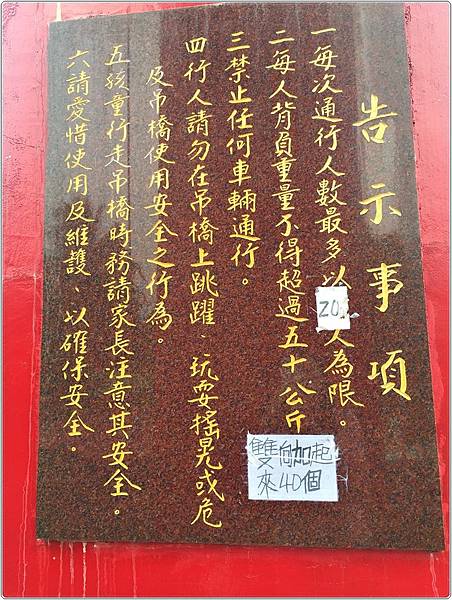 告示事項
一每次通行人數最多以20人為限。
二每人背負重量不得超過五十公斤
三禁止任何車輛通行。
四行人請勿在吊橋上跳躍、玩耍搖晃或危
及吊橋使用安全之行為。
五孩童行走吊橋時務請家長注意其安全。
六請愛惜使用及維護、以確保安全。
雙向加起
來40個